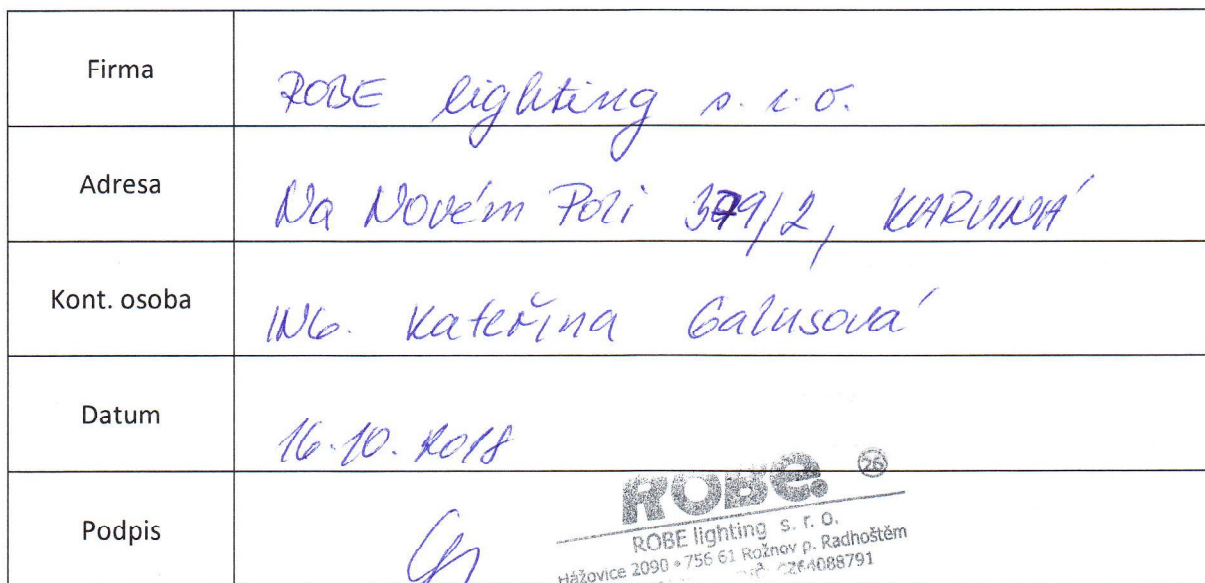 Firma
ROBE lighting s. r. o.
Adresa
Na Novém Poli 379/2, KARVINÁ
Kont. osoba
ING. Kateřina Galusová
Datum
16.10.2018
Podpis
ROBE® 26
ROBE lighting s. r. o.
Hážovice 2090 • 756 61 Rožnov p. Radhoštěm
CZ64088791